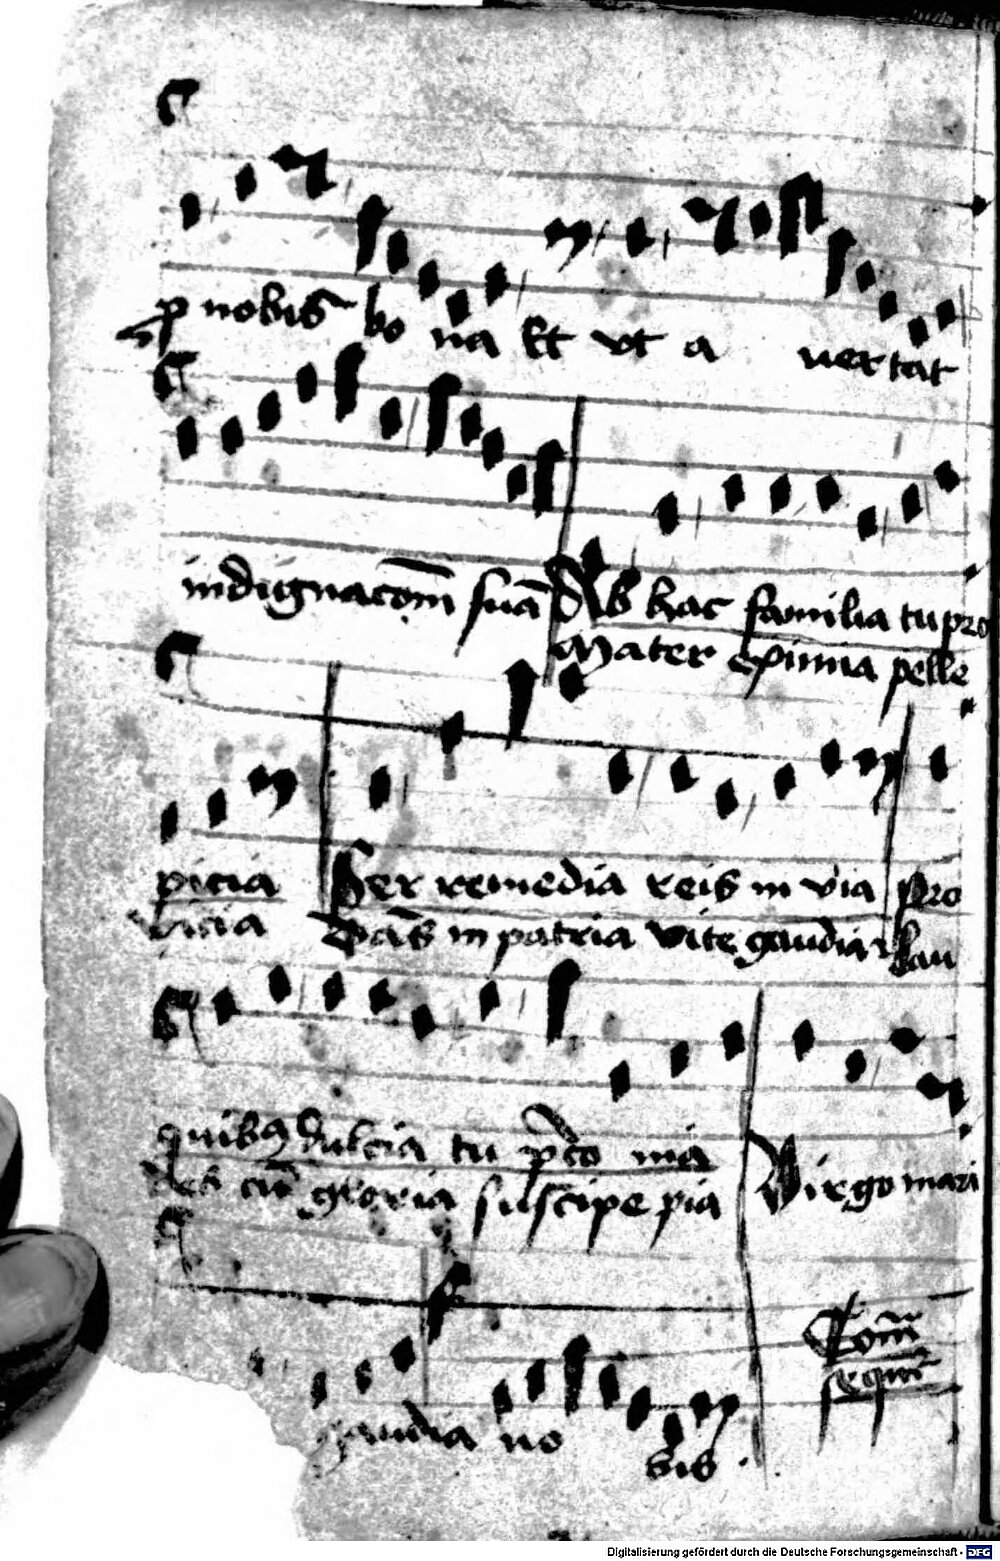 p nobis bo na Et vt a uertat
indignacõm suã Ab hac familia tu pro
Mater eximia pelle
picia
Fer remedia reis in via pro
vicia Dãs in patria vite gaudia lau
quibus dulcia tu p̃co nia
des cũ gloria suscipe pia Virgo mari
Com̃
sequit̃
gaudia no
bis.
Digitalisierung gefördert durch die Deutsche Forschungsgemeinschaft - DFG